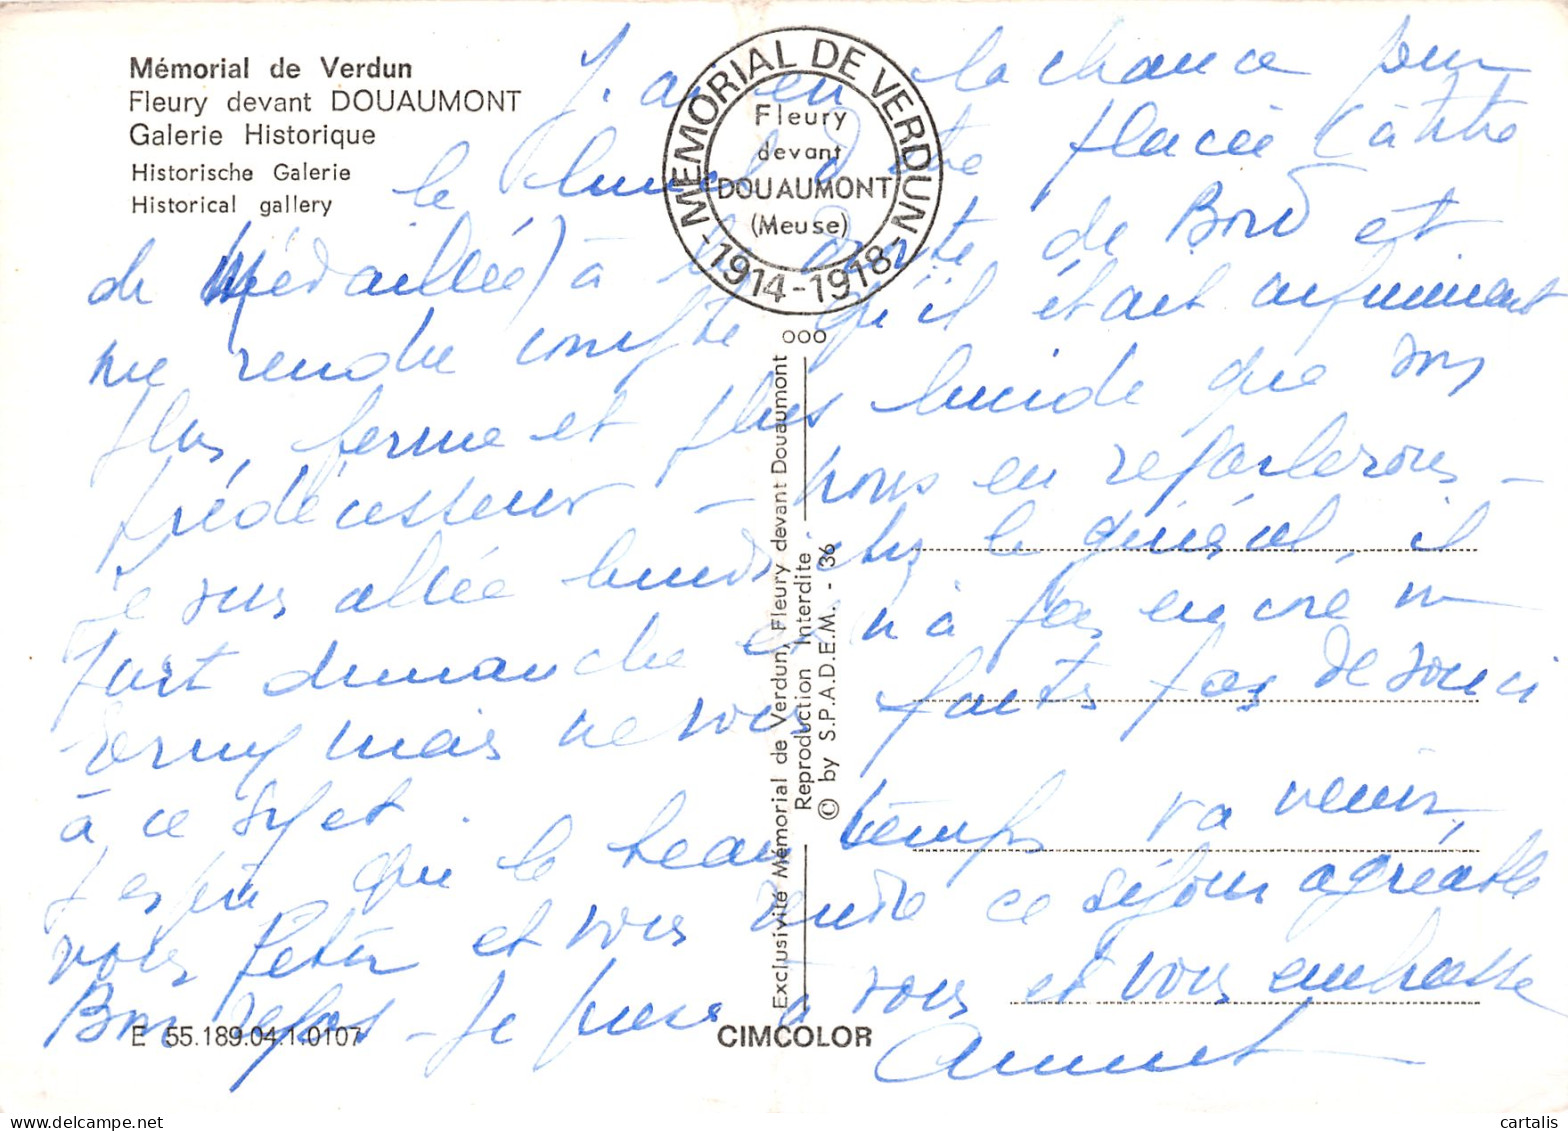 Mémorial de Verdun
Fleury devant DOUAUMONT
Galerie Historique
Historische Galerie
Historical gallery
MEMORIAL DE VERDUN
-1914-1918-
Fleury
devant
DOUAUMONT
(Meuse)
J'ai eu la chance pour
le d'être placée (à titre
de Médaillée) à la droite de Bord et
me rendre compte qu'il était
plus ferme et plus lucide que son
prédécesseur - nous en reparlerons -
Je suis allée lundi chez le général, il
part dimanche et n'a pas encore vu
mais ne vous faites pas de souci
à ce sujet.
J'espère que le beau temps va venir,
vous fêter et vous rendre ce séjour agréable
Bon repos - Je pense à vous et vous embrasse
ooo
Exclusivité Mémorial de Verdun, Fleury devant Douaumont
Reproduction Interdite
© by S.P.A.D.E.M. - 36
E 55.189.04.1.0107
CIMCOLOR
cartalis